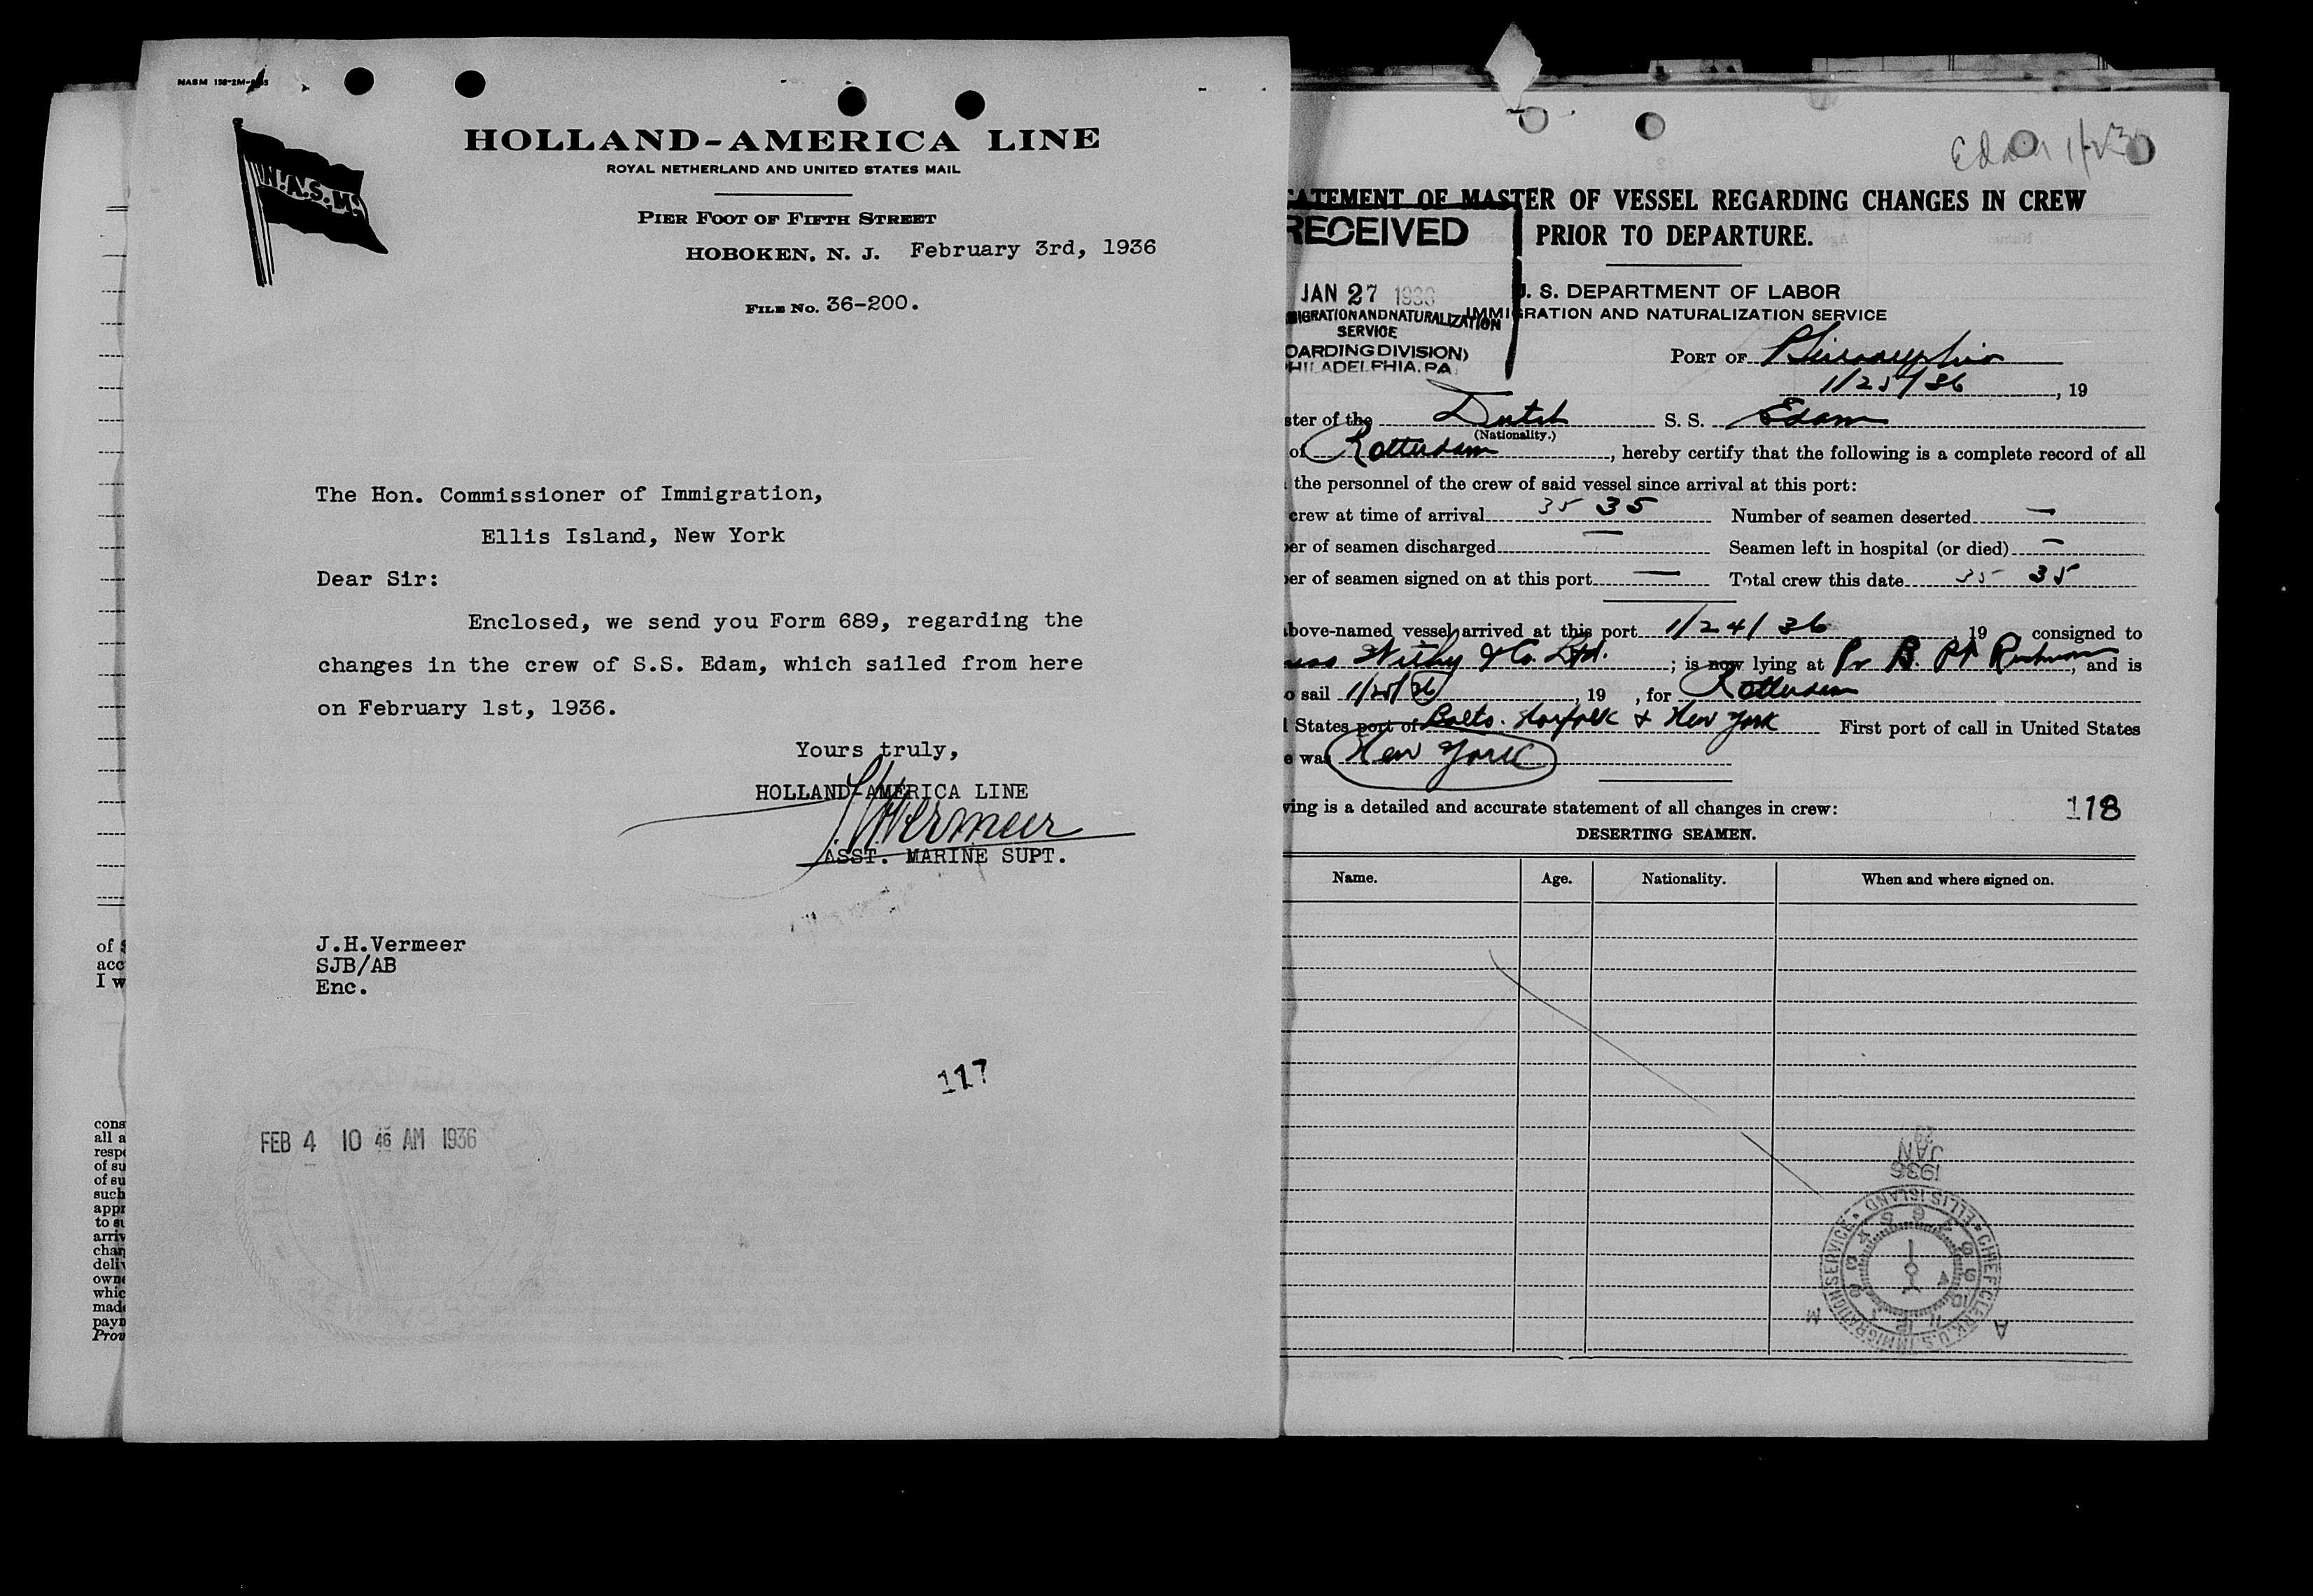 NASM 158-2M-
HOLLAND-AMERICA LINE
ROYAL NETHERLAND AND UNITED STATES MAIL
N.A.S.M.
PIER FOOT OF FIFTH STREET
HOBOKEN, N. J. February 3rd, 1936
FILE No. 36-200.
The Hon. Commissioner of Immigration,
Ellis Island, New York
Dear Sir:
Enclosed, we send you Form 689, regarding the
changes in the crew of S.S. Edam, which sailed from here
on February 1st, 1936.
Yours truly,
HOLLAND-AMERICA LINE
J.H. Vermeer
ASST. MARINE SUPT.
J.H.Vermeer
SJB/AB
Enc.
117
FEB 4 10 46 AM 1936
of
acc
I w
cons
all a
resp
of su
of su
such
appr
to su
arriv
chan
deliv
owne
whic
made
paym
Prov
Edam
ATEMENT OF MASTER OF VESSEL REGARDING CHANGES IN CREW
PRIOR TO DEPARTURE.
RECEIVED
JAN 27 1936
MIGRATION AND NATURALIZATION
SERVICE
OARDING DIVISION)
PHILADELPHIA, PA.
U. S. DEPARTMENT OF LABOR
IMMIGRATION AND NATURALIZATION SERVICE
PORT OF Philadelphia
1/25/36, 19
ster of the Dutch S. S. Edam
(Nationality.)
of Rotterdam, hereby certify that the following is a complete record of all
the personnel of the crew of said vessel since arrival at this port:
crew at time of arrival 35 35 Number of seamen deserted —
er of seamen discharged — Seamen left in hospital (or died) —
er of seamen signed on at this port — Total crew this date 35 35
bove-named vessel arrived at this port 1/24/36, 19 consigned to
ness Withy & Co. Ltd.; is now lying at Pr B. Pt Richmond, and is
o sail 1/25/36, 19 , for Rotterdam
States port of Balto. Norfolk & New York First port of call in United States
e was New York
ving is a detailed and accurate statement of all changes in crew:
118
DESERTING SEAMEN.
Name. Age. Nationality. When and where signed on.
JAN
1936
CHIEF CLERK U.S. IMMIGRATION SERVICE • ELLIS ISLAND •
A M